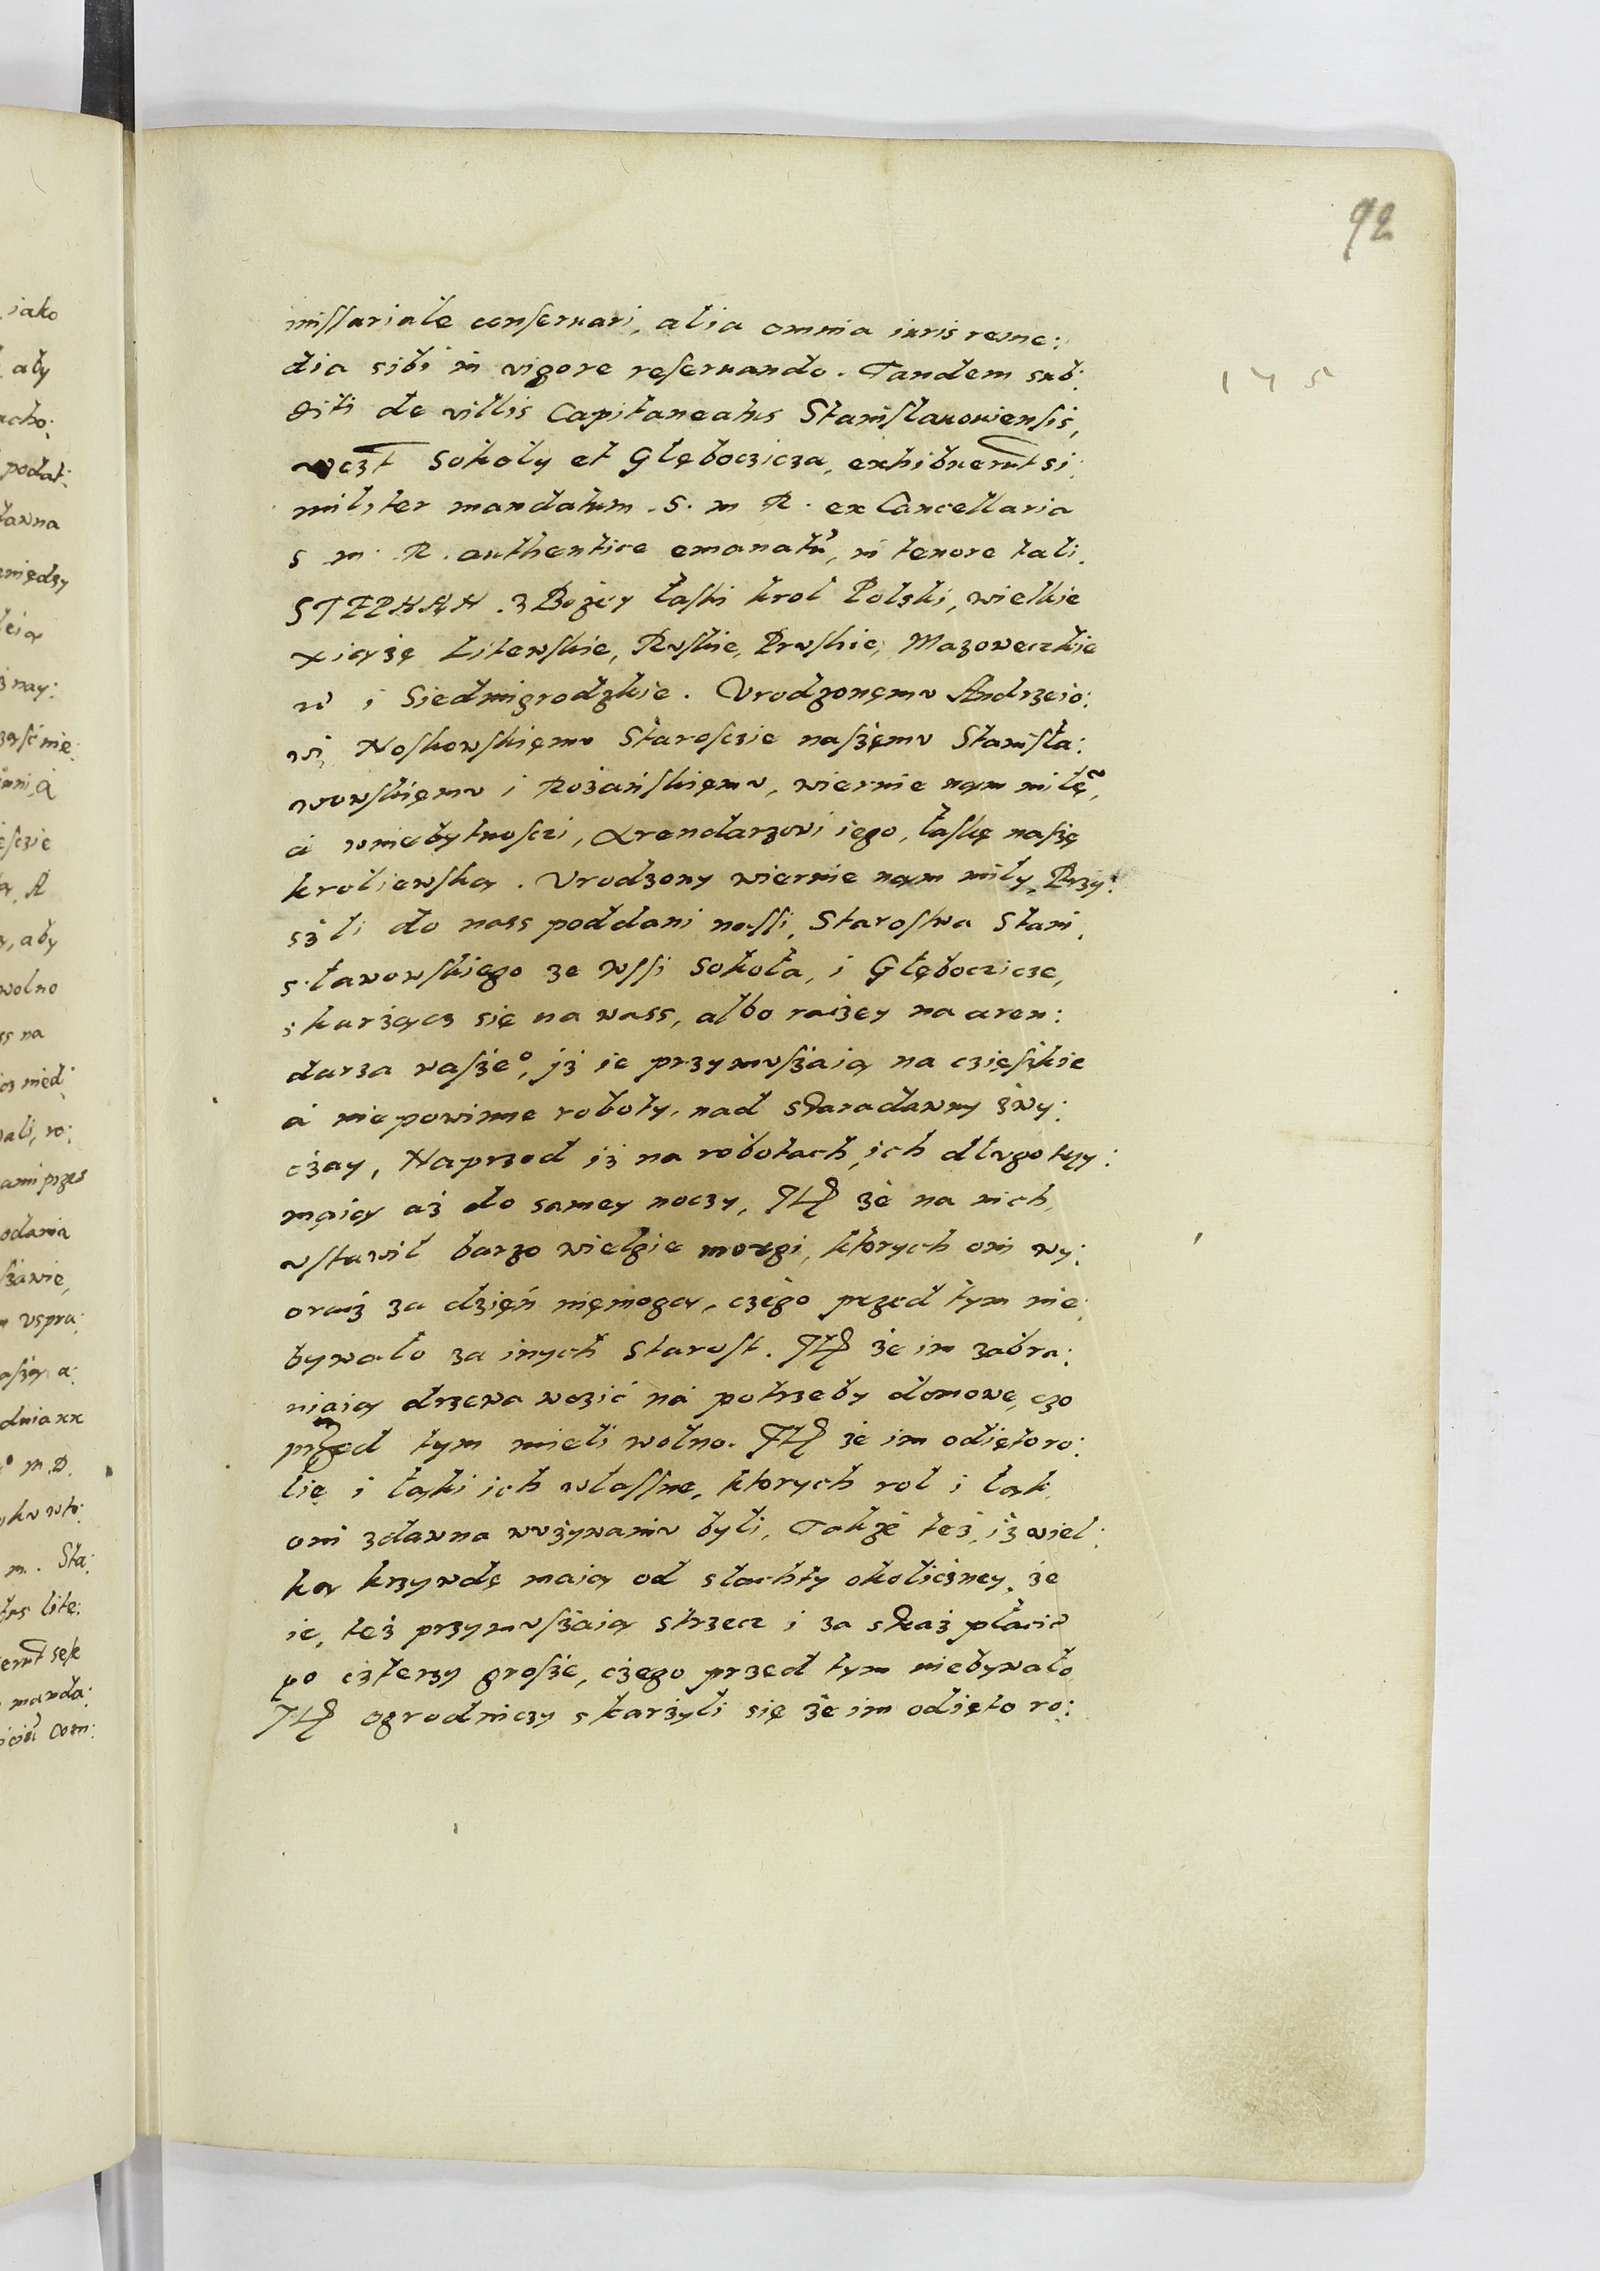 92
145
missariale conseruari, alia omnia iuris reme:
dia sibi in vigore reseruando. Tandem sub:
diti de villis Capitaneatus Stanislauouiensis,
Sokoly et Głęboczicza, exhibuerũt si:
militer mandatum S. m R. ex Cancellaria
S m. R. authentice emanatũ, in tenore tali.
STEPHAN. z Bożey łaski krol Polski, wielkie
xiążę Litewskie, Ruskie, Pruskie, Mazoweczkie
i Siedmigrodzkie. Vrodzonęmv Andrzeio:
wi Noskowskięmv Starosczie naszęmv Stanisła:
wowskięmv i Rożańskięmv, wiernie nąm miłę~,
á wniebytnosczi, Arendarzowi iego, łaskę naszę
kroliewską. Vrodzony wiernie nąm miły, Przy:
szli do nass poddani nassi, Starostwa Stani,
sławowskiego ze Wssi Sokoła, i Głęboczicze,
skarżącz się na wass, albo raczey na aren:
darza wasze°, jż ie przymvszaią na czięskie
á nie powinne roboty, nad staradawny zwy:
czay, Naprzod iż na robotach ich dlvgo trzy:
maią aż do samey noczy, Itē że na nich,
vstawił barzo wielgie morgi, ktorych oni wy:
oracż za dzięń nięmogą, czego przed tym nie:
bywało za inych Starost. Itē że im zabra:
niaią drzewa wozić ná potrzeby domowe, czo
przed tym mieli wolno. Itē że im odięto ro:
lię i łąki ich własne, ktorych rol i łąk
oni zdawna wvżywaniv byli, Także też, iż wiel:
ką krzywdę maią od slachty okoliczney, że
ie, też przymvszaią strzecz i za straż płacić
po czterzy grosze, czego przed tym niebywało
Itē ogrodniczy skarżyli się że im odięto ro: